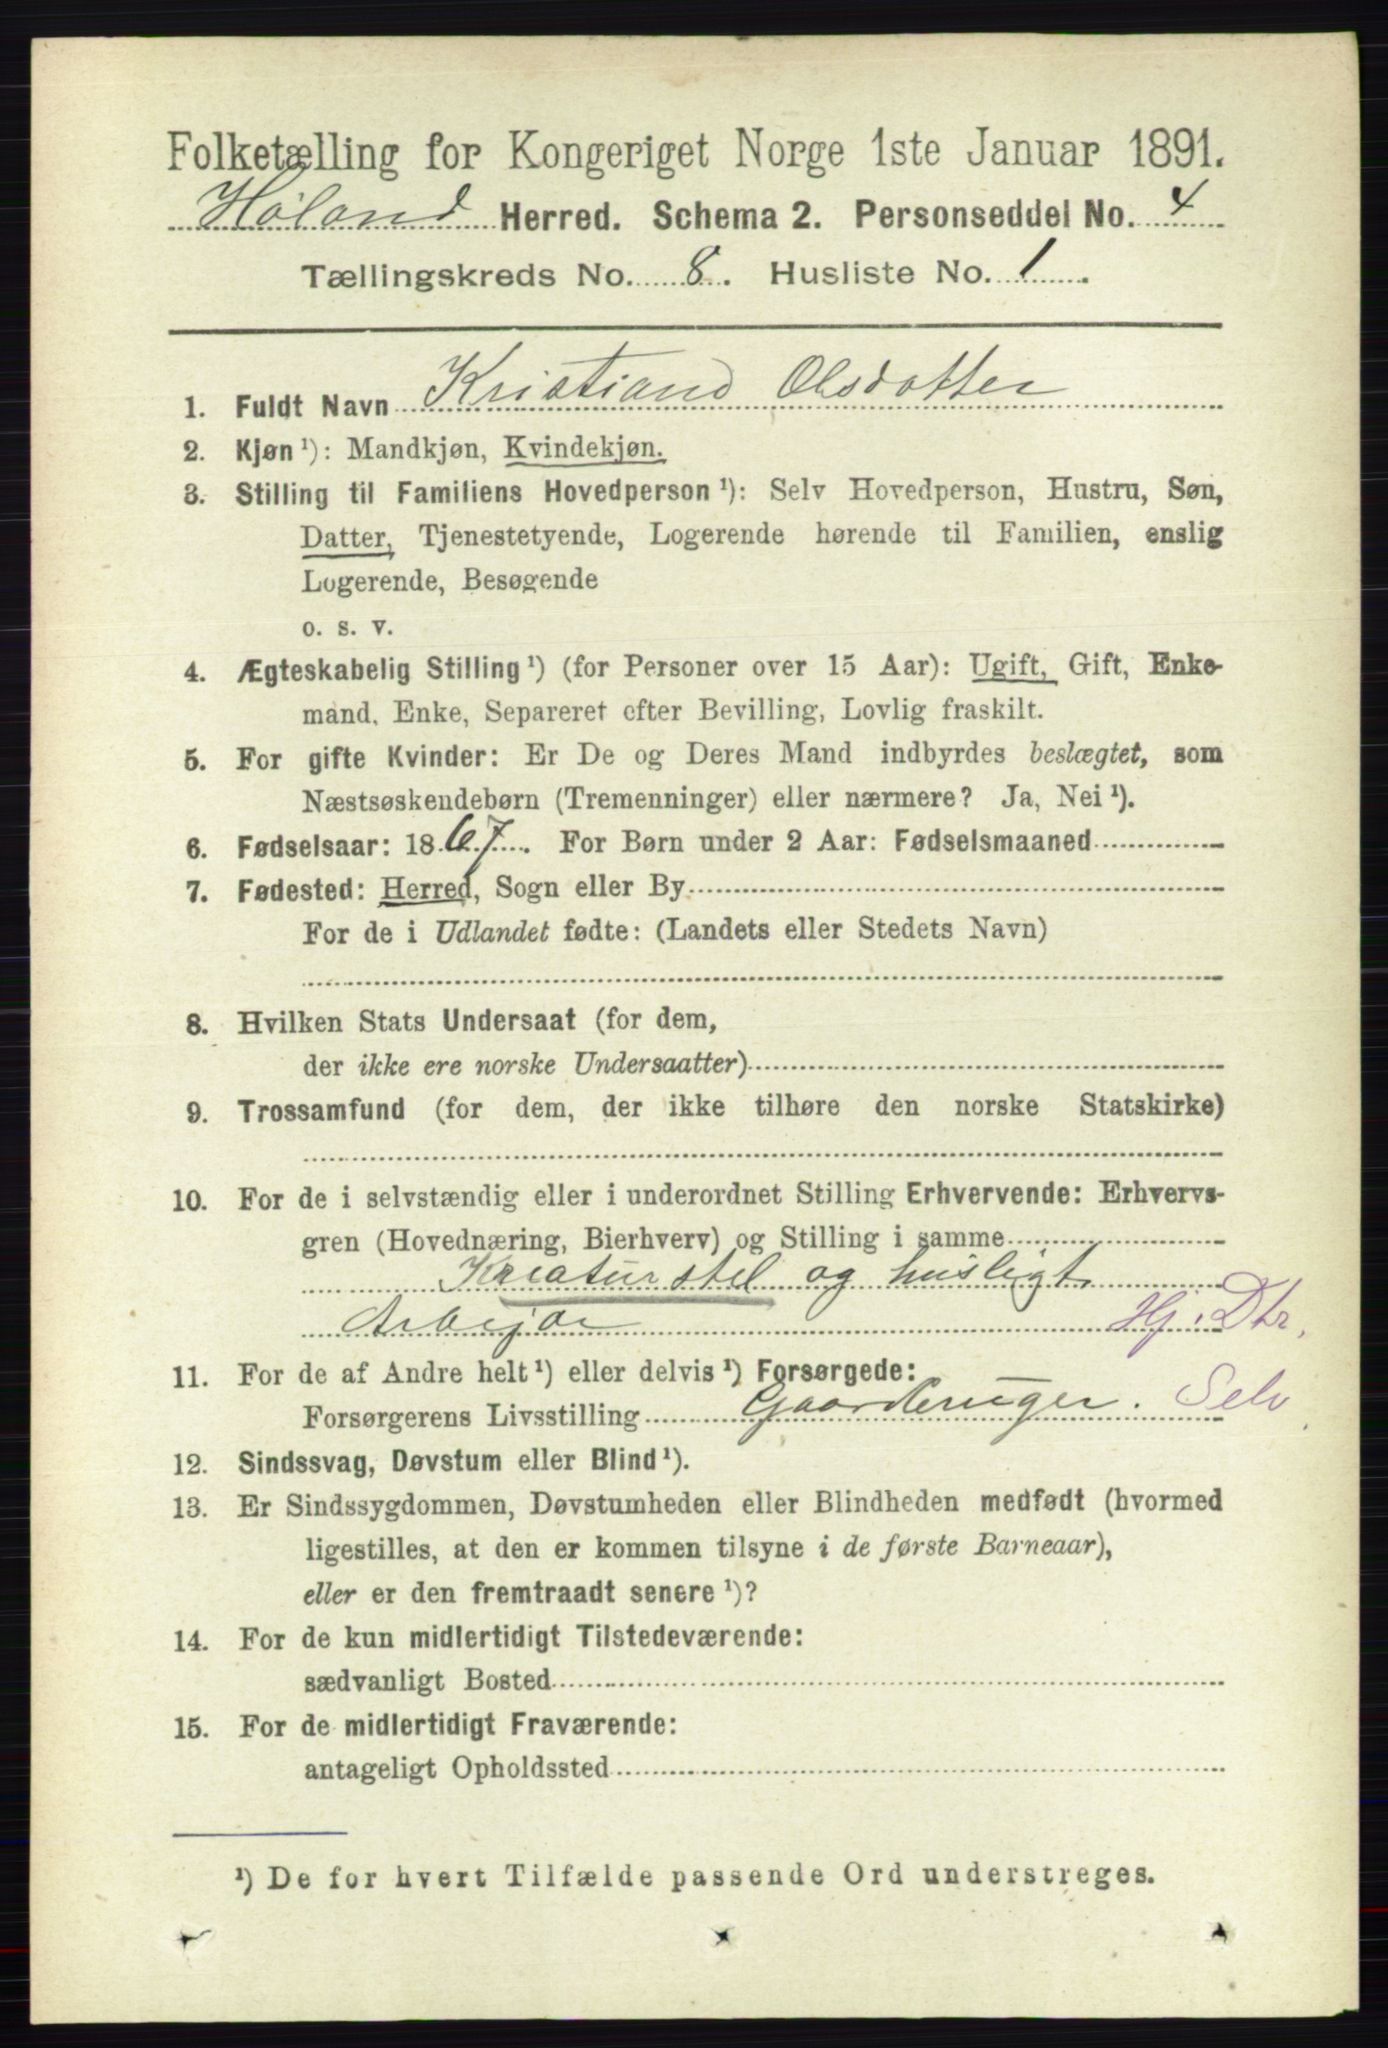 Folketælling for Kongeriget Norge 1ste Januar 1891.
Høland Herred. Schema 2. Personseddel No. 4
Tællingskreds No. 8. Husliste No. 1.
1. Fuldt Navn Kristiand Olsdatter
2. Kjøn ¹): Mandkjøn, Kvindekjøn.
3. Stilling til Familiens Hovedperson ¹): Selv Hovedperson, Hustru, Søn,
Datter, Tjenestetyende, Logerende hørende til Familien, enslig
Logerende, Besøgende
o. s. v.
4. Ægteskabelig Stilling ¹) (for Personer over 15 Aar): Ugift, Gift, Enke-
mand, Enke, Separeret efter Bevilling, Lovlig fraskilt.
5. For gifte Kvinder: Er De og Deres Mand indbyrdes beslægtet, som
Næstsøskendebørn (Tremenninger) eller nærmere? Ja, Nei ¹).
6. Fødselsaar: 1867. For Børn under 2 Aar: Fødselsmaaned
7. Fødested: Herred, Sogn eller By
For de i Udlandet fødte: (Landets eller Stedets Navn)
8. Hvilken Stats Undersaat (for dem,
der ikke ere norske Undersaatter)
9. Trossamfund (for dem, der ikke tilhøre den norske Statskirke)
10. For de i selvstændig eller i underordnet Stilling Erhvervende: Erhvervs-
gren (Hovednæring, Bierhverv) og Stilling i samme
Kreaturstel og husligt
Arbejde Hj. Dtr.
11. For de af Andre helt ¹) eller delvis ¹) Forsørgede:
Forsørgerens Livsstilling Gaardbruger. Selv
12. Sindssvag, Døvstum eller Blind ¹).
13. Er Sindssygdommen, Døvstumheden eller Blindheden medfødt (hvormed
ligestilles, at den er kommen tilsyne i de første Barneaar),
eller er den fremtraadt senere ¹)?
14. For de kun midlertidigt Tilstedeværende:
sædvanligt Bosted
15. For de midlertidigt Fraværende:
antageligt Opholdssted
¹) De for hvert Tilfælde passende Ord understreges.